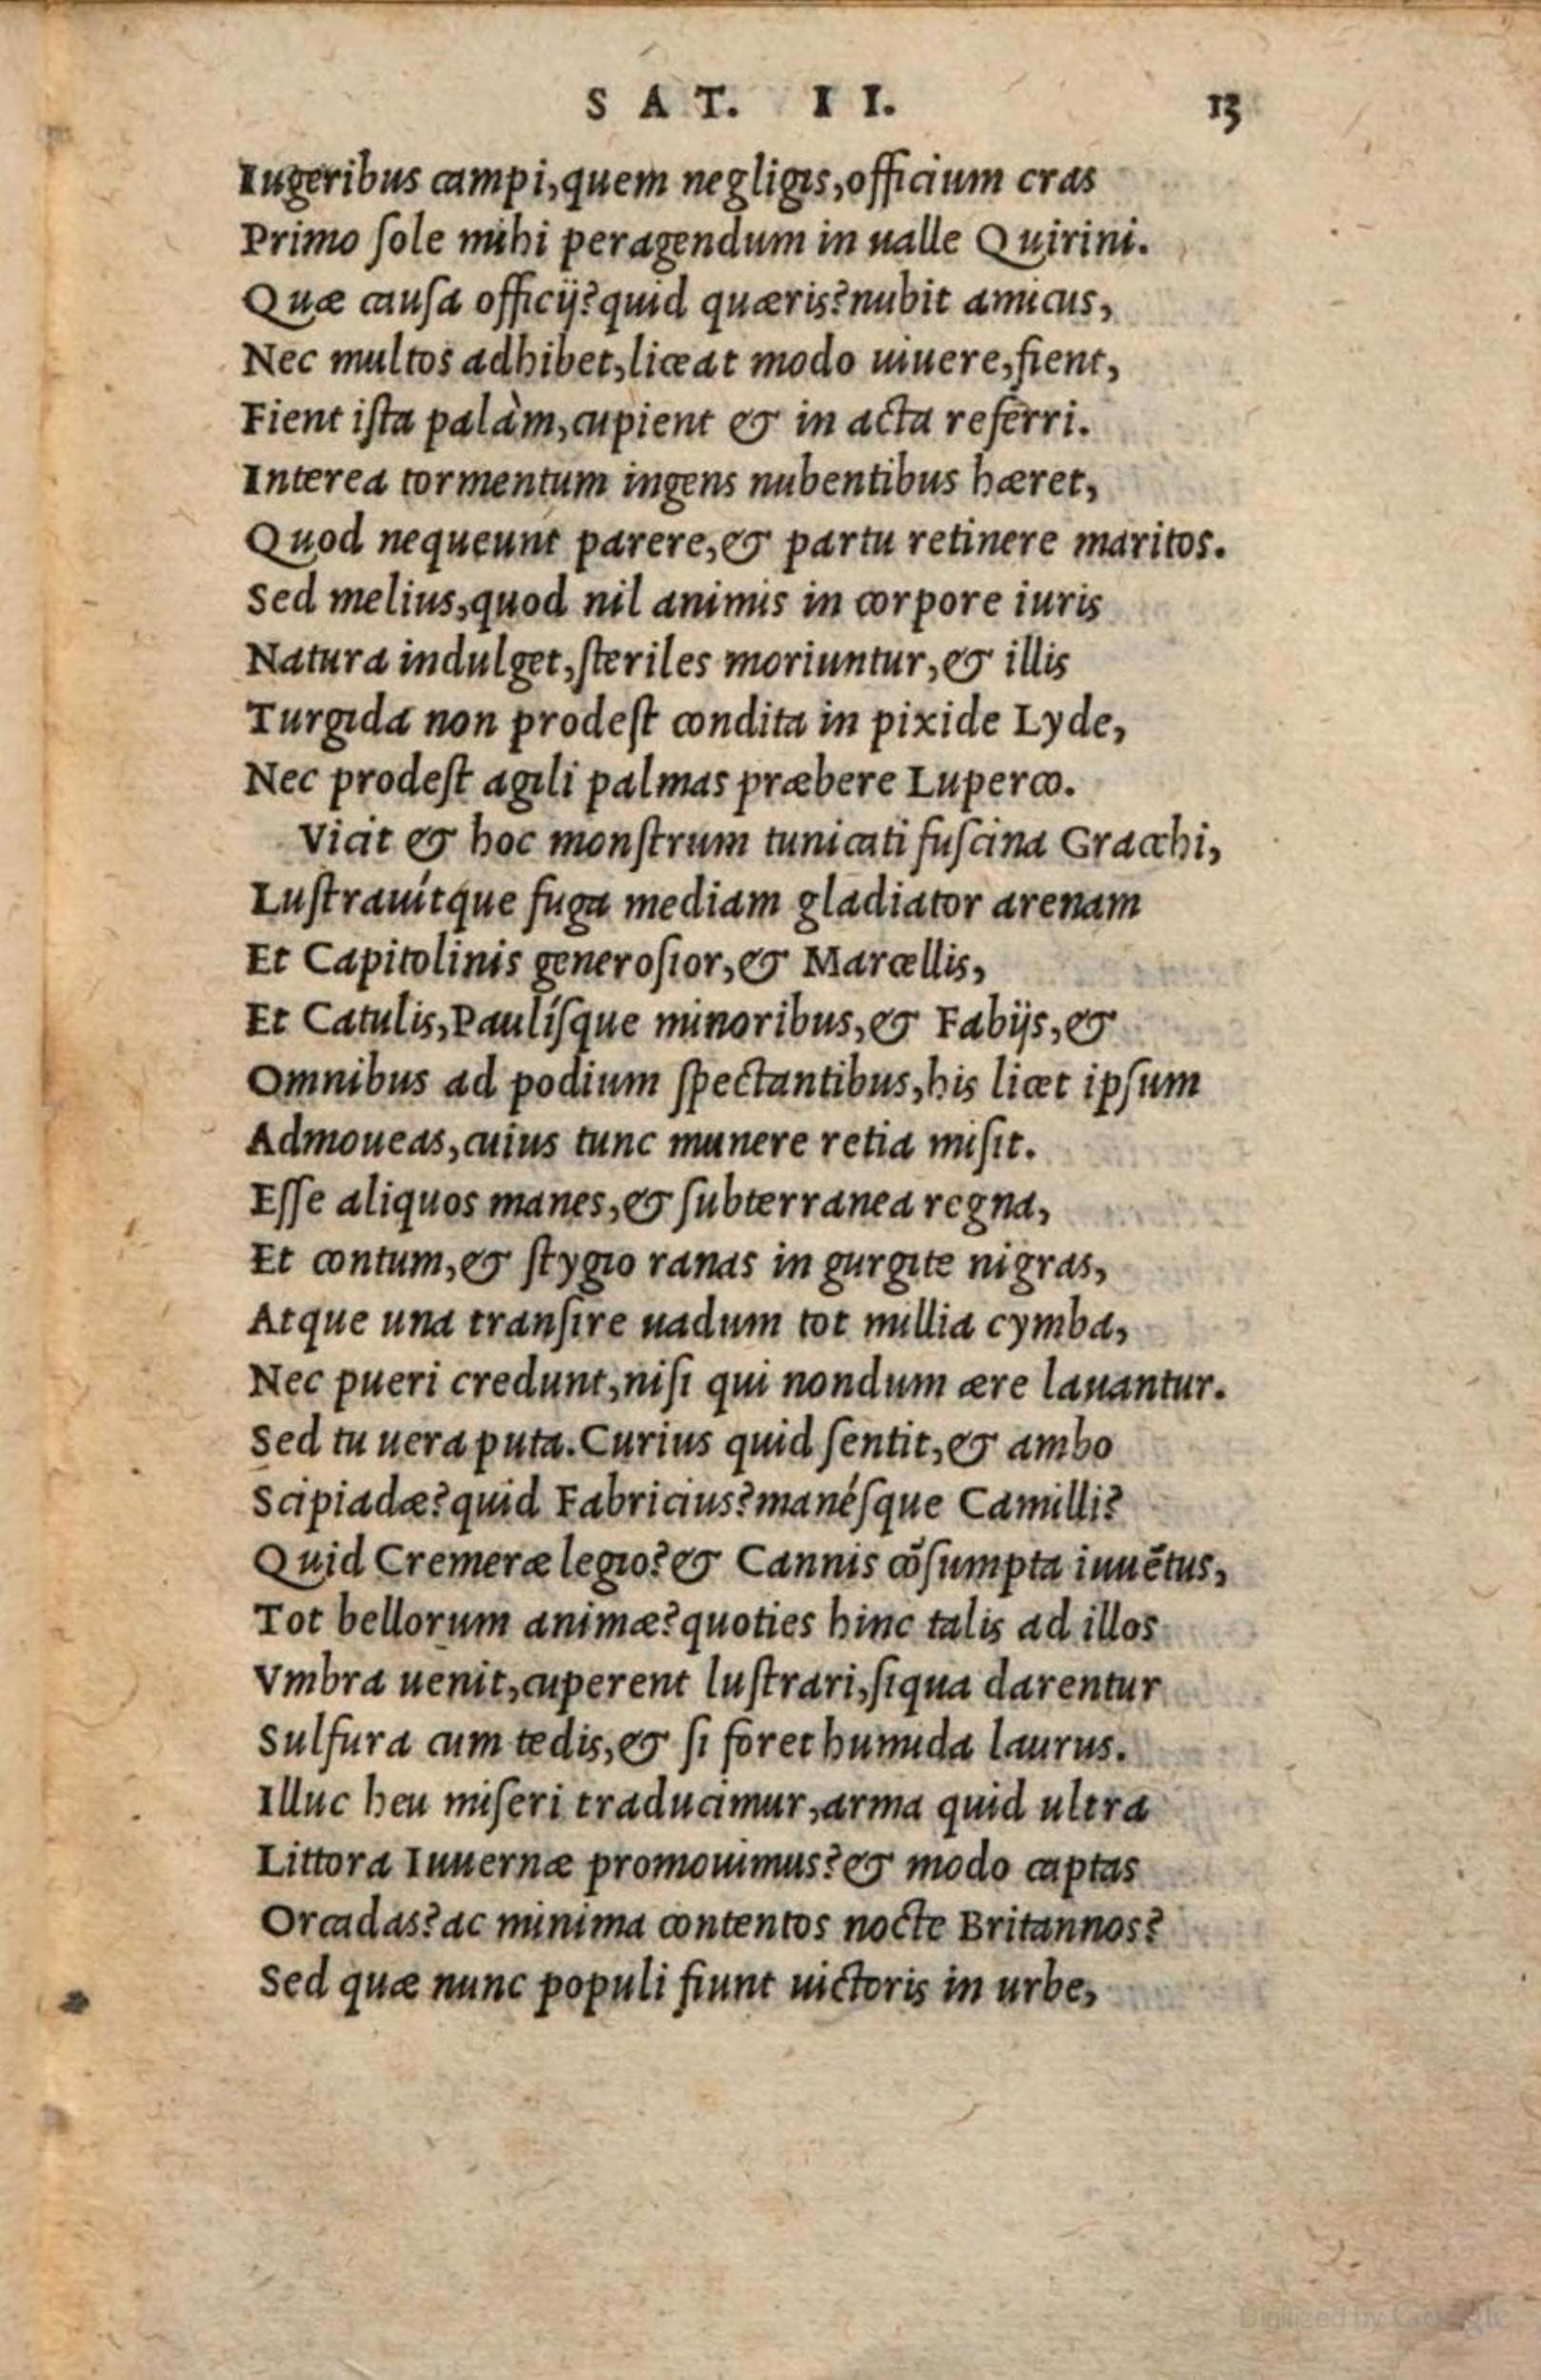 SAT. II. 13
Iugeribus campi, quem negligis, officium cras
Primo ſole mihi peragendum in ualle Quirini.
Quæ cauſa officij? quid quæris? nubit amicus,
Nec multos adhibet, liceat modo uiuere, fient,
Fient iſta palàm, cupient & in acta referri.
Interea tormentum ingens nubentibus hæret,
Quod nequeunt parere, & partu retinere maritos.
Sed melius, quod nil animis in corpore iuris
Natura indulget, ſteriles moriuntur, & illis
Turgida non prodeſt condita in pixide Lyde,
Nec prodeſt agili palmas præbere Luperco.
Vicit & hoc monſtrum tunicati fuſcina Gracchi,
Luſtrauítque fuga mediam gladiator arenam
Et Capitolinis generoſior, & Marcellis,
Et Catulis, Paulíſque minoribus, & Fabijs, &
Omnibus ad podium ſpectantibus, his licet ipſum
Admoueas, cuius tunc munere retia miſit.
Eſſe aliquos manes, & ſubterranea regna,
Et contum, & ſtygio ranas in gurgite nigras,
Atque una tranſire uadum tot millia cymba,
Nec pueri credunt, niſi qui nondum ære lauantur.
Sed tu uera puta. Curius quid ſentit, & ambo
Scipiadæ? quid Fabricius? manéſque Camilli?
Quid Cremeræ legio? & Cannis cõſumpta iuuẽtus,
Tot bellorum animæ? quoties hinc talis ad illos
Vmbra uenit, cuperent luſtrari, ſiqua darentur
Sulfura cum tedis, & ſi foret humida laurus.
Illuc heu miſeri traducimur, arma quid ultra
Littora Iuuernæ promouimus? & modo captas
Orcadas? ac minima contentos nocte Britannos?
Sed quæ nunc populi fiunt uictoris in urbe,
Digitized by Google